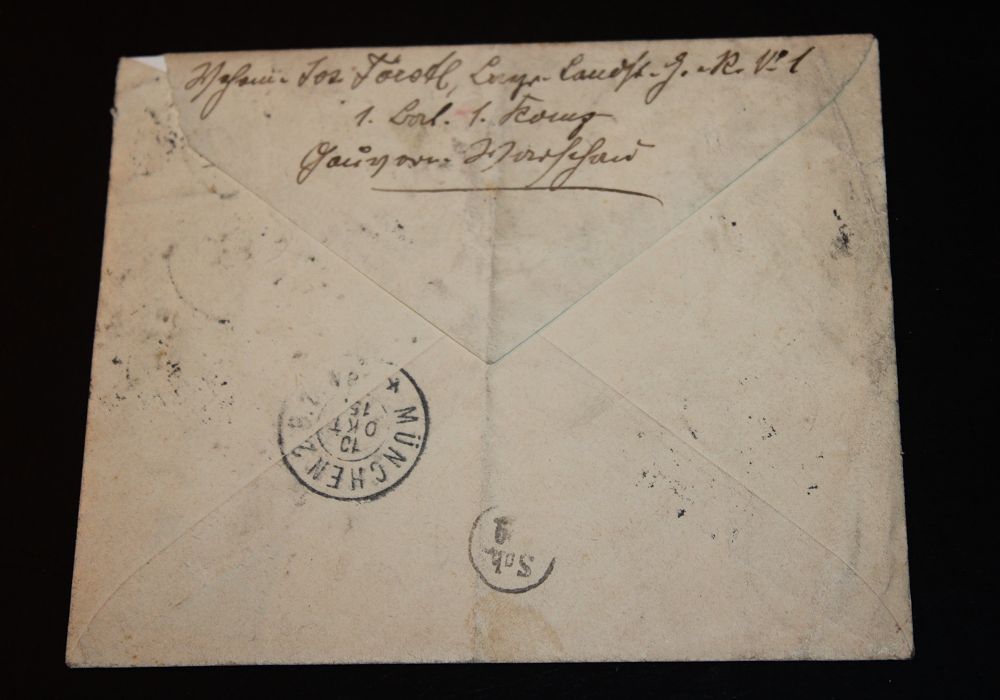 Wehrm. Jos Förstl, Bayr. Landst. J. R. No 1
1. Bat. 1. Komp
Gouvern. Warschau
MÜNCHEN 2 B.Z.
10
OKT
15
Sch
g